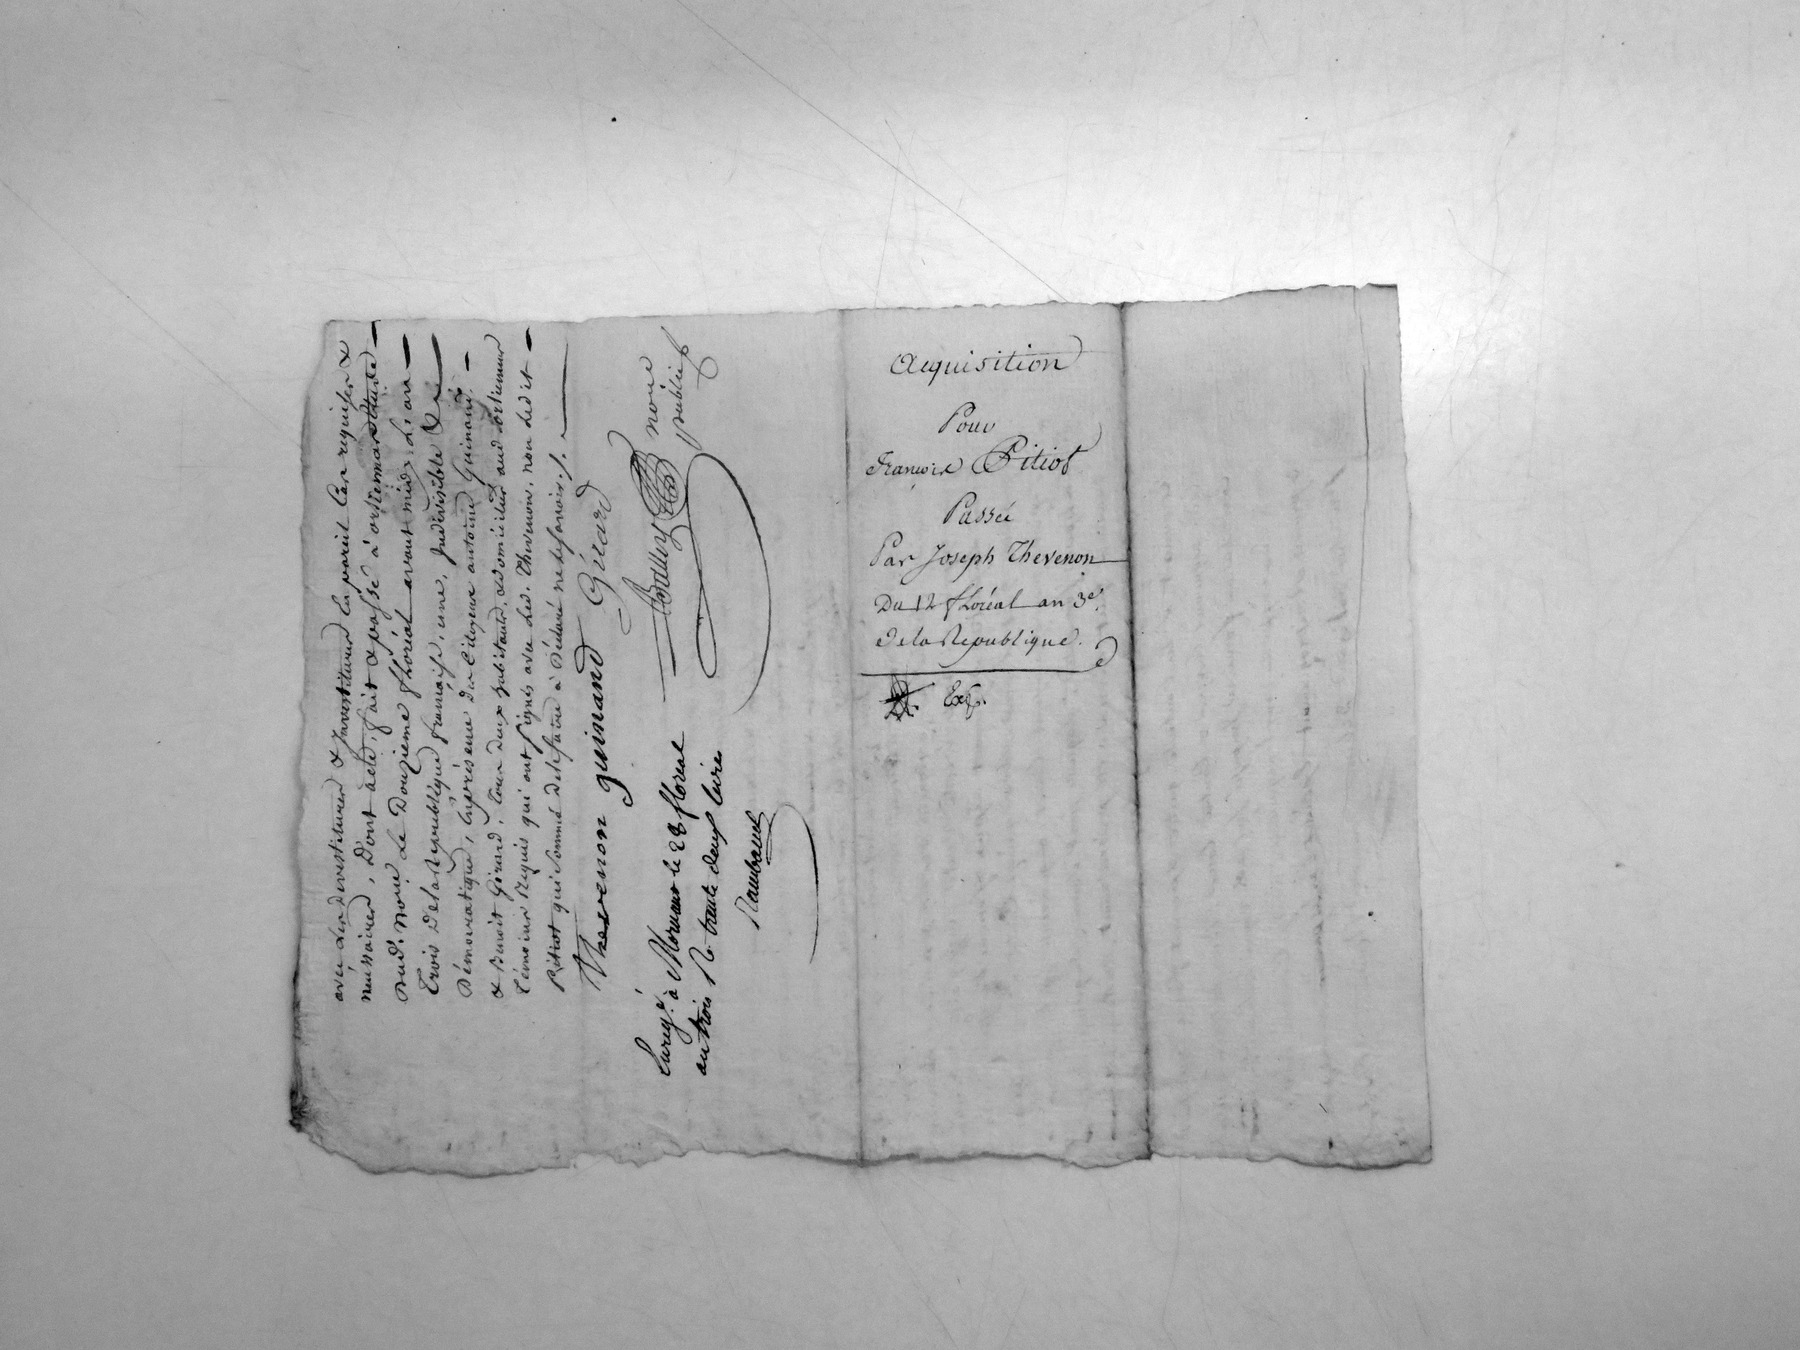 avec les devestitures & Investitures En pareil Cas requises &
nécessaires, Dont acte, fait & passé à
dud. Nore. Le Douzieme floréal avant midy L'an
Trois De la République françoise, une, Indivisible &
Démocratique, En présence des Citoyens antoine Guinand
& Benoit Girard, Tous deux habitants,
Témoins Requis qui ont signés avec Led. Thevenon, non Ledit
Pitiot qui sommé de le faire à Déclaré ne le sçavoir ./.
Thevenon guinand Girard
nore
public
Enregé. à Mornant le 28 floreal
an trois R. trente deux livres
Rambaud
Acquisition
Pour
François Pitiot
Passée
Par Joseph Thevenon
Du 12 floréal an 3e.
De la Republique.
Exp.